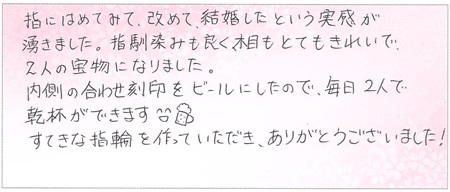 指にはめてみて、改めて、結婚したという実感が
湧きました。指馴染みも良く、木目もとてもきれいで、
2人の宝物になりました。
内側の合わせ刻印をビールにしたので、毎日2人で
乾杯ができます
すてきな指輪を作っていただき、ありがとうございました！